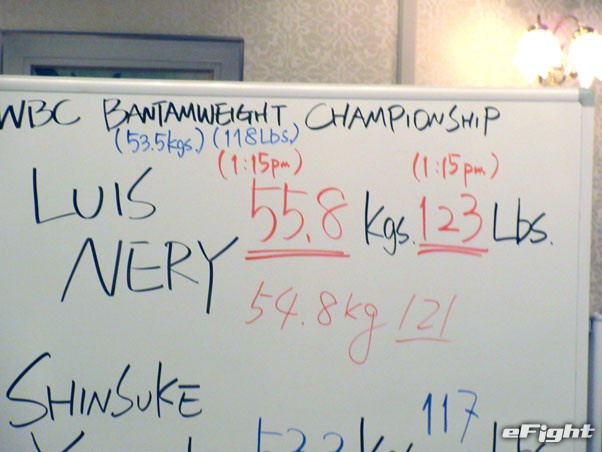 WBC BANTAMWEIGHT CHAMPIONSHIP
(53.5kgs.) (118Lbs.)
(1:15pm) (1:15pm)
LUIS NERY 55.8 Kgs. 123 Lbs.
54.8kg 121
SHINSUKE
117
eFight